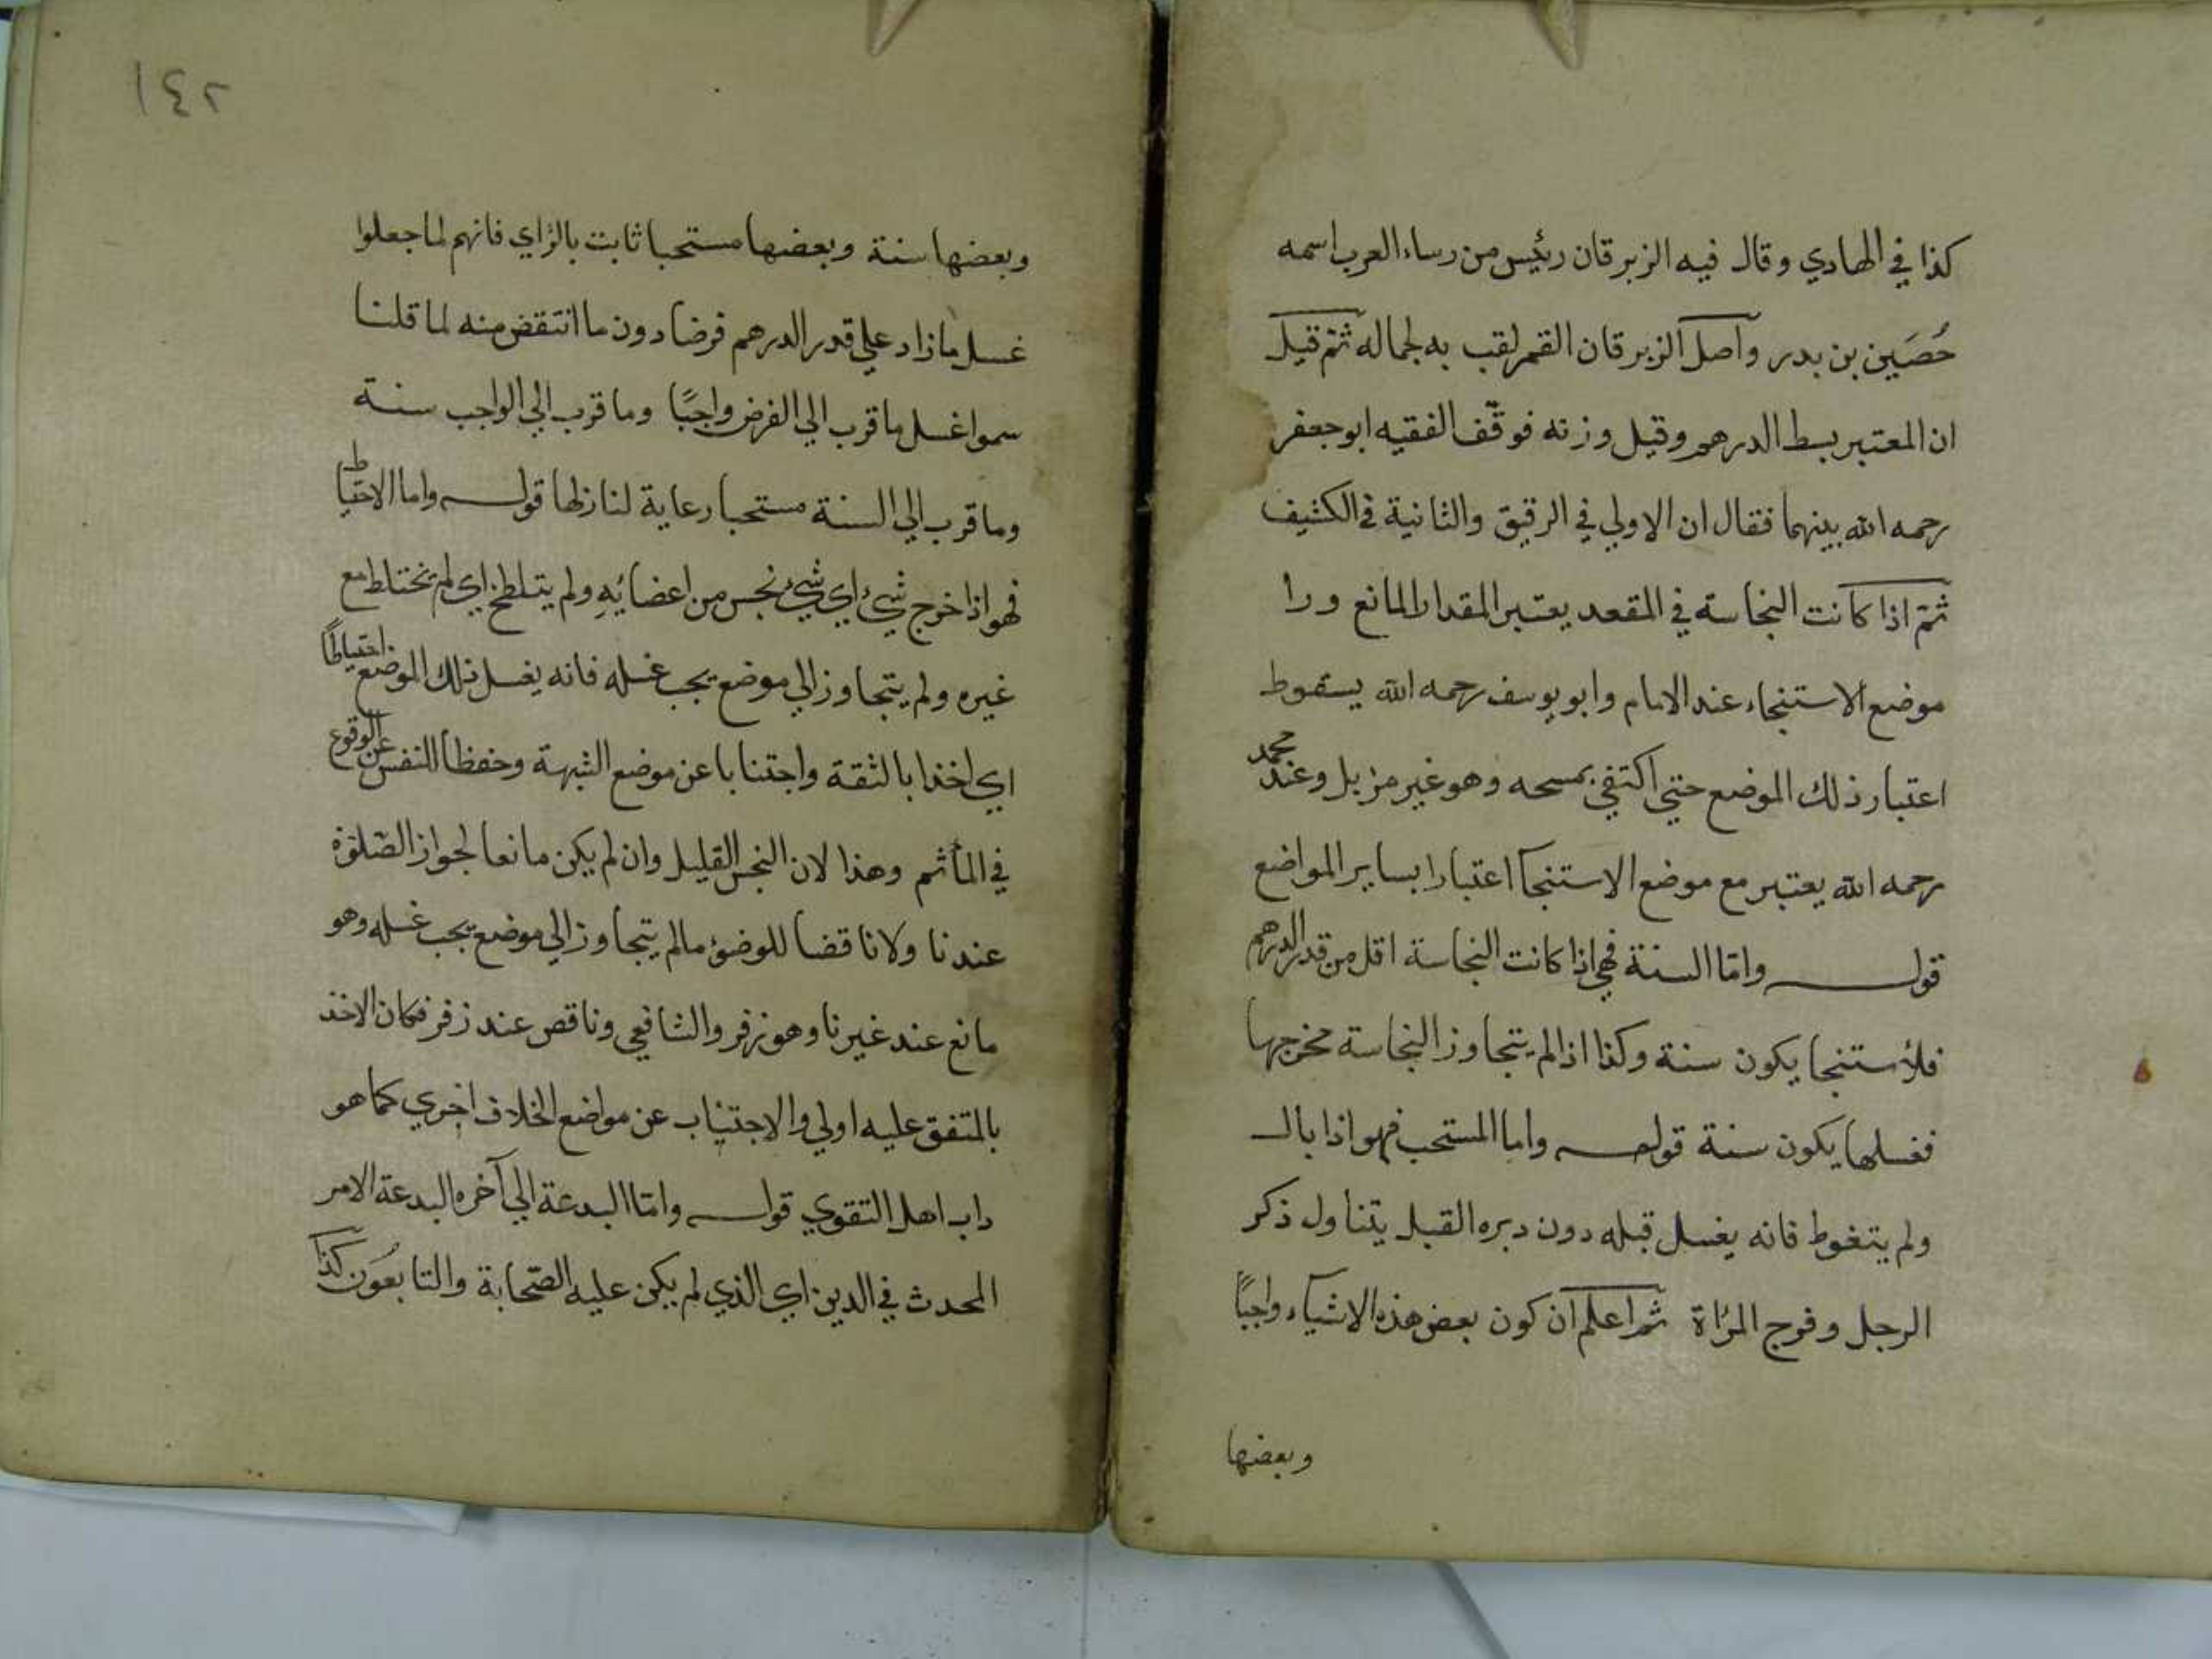 كذا في الهادي وقال فيه الزبرقان رئيس من رساء العرب اسمه
حُصَين بن بدر وأصل الزبرقان القمر لقب به لجماله ثم قيل
ان المعتبر بسط الدرهم وقيل وزنه فوقّف الفقيه ابو جعفر
رحمه الله بينهما فقال ان الاولي في الرقيق والثانية في الكثيف
ثم اذا كانت النجاسة في المقعد يعتبر المقدار المانع ورا
موضع الاستنجاء عند الامام وابو يوسف رحمه الله يسقوط
اعتبار ذلك الموضع حتي اكتفي بمسحه وهو غير مزيل وعند محمد
رحمه الله يعتبر مع موضع الاستنجا اعتبارا بساير المواضع
قوله وامّا السنة فهي اذا كانت النجاسة اقل من قدر الدرهم
فلأستنجا يكون سنة وكذا اذا لم يتجاوز النجاسة مخرجها
فغسلها يكون سنة قوله واما المستحب فهو اذا بال
ولم يتغوط فانه يغسل قبله دون دبره القبل يتناول ذكر
الرجل وفرج المرأة ثم اعلم ان كون بعض هذه الاشياء واجبًا
وبعضها
١٤٢
وبعضها سنة وبعضها مستحبا ثابت بالرأي فانهم لما جعلوا
غسل ما زاد علي قدر الدرهم فرضا دون ما انتقض منه لما قلنا
سموا غسل ما قرب الي الفرض واجبًا وما قرب الي الواجب سنة
وما قرب الي السنة مستحبا رعاية لمنازلها قوله واما الاحتياط
فهو اذا خرج شيئ اي شيئ نجس من اعضائِهِ ولم يتلطخ اي لم يختلط مع
غيره ولم يتجاوز الي موضع يجب غسله فانه يغسل ذلك الموضع احتياطًا
اي اخذا بالثقة واجتنابا عن موضع الشبهة وحفظا للنفس عن الوقوع
في المأثم وهذا لان النجس القليل وان لم يكن مانعا لجواز الصّلوة
عندنا ولا ناقضا للوضؤ مالم يتجاوز الي موضع يجب غسله وهو
مانع عند غيرنا وهو زفر والشافعي وناقص عند زفر فكان الاخذ
بالمتفق عليه اولي والاجتناب عن مواضع الخلاف اجري كما هو
داب اهل التقوي قوله وامّا البدعة الي آخره البدعة الامر
المحدث في الدين اي الذي لم يكن عليه الصّحابة والتابعُون كذا